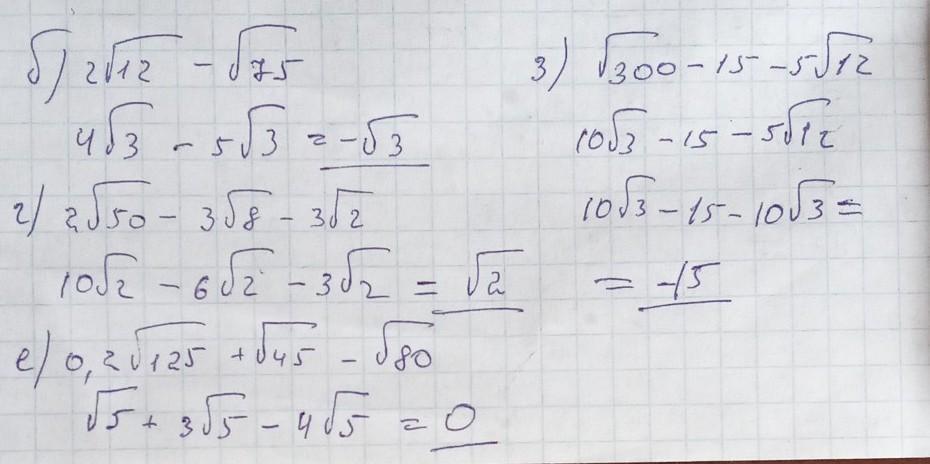 б) 2√12 - √75
4√3 - 5√3 = -√3
г) 2√50 - 3√8 - 3√2
10√2 - 6√2 - 3√2 = √2
е) 0,2√125 + √45 - √80
√5 + 3√5 - 4√5 = 0
з) √300 - 15 - 5√12
10√3 - 15 - 5√12
10√3 - 15 - 10√3 =
= -15